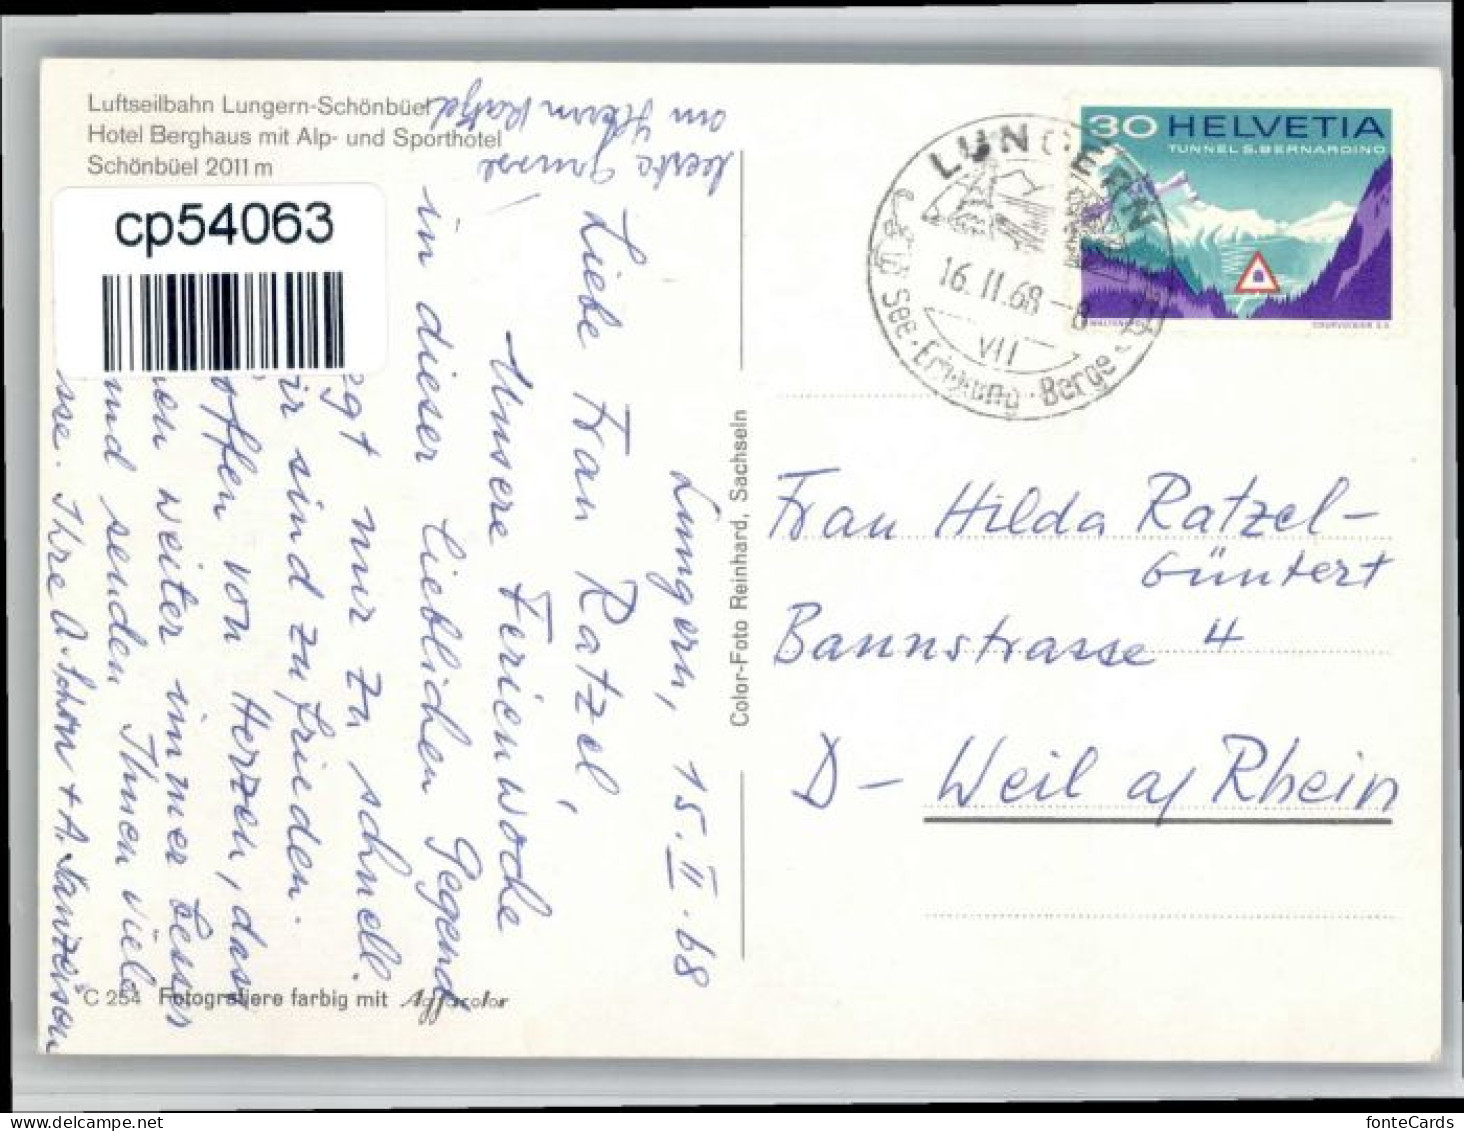 Luftseilbahn Lungern-Schönbüel
Hotel Berghaus mit Alp- und Sporthotel
Schönbüel 2011 m
cp54063
30 HELVETIA
TUNNEL S. BERNARDINO
COURVOISIER S.A.
LUNGERN
16.II.68-8
VII
See · Erholung · Berge
Lungern, 15. II. 68
Liebe Frau Ratzel,
Unsere Ferienwoche
in dieser lieblichen Gegend
egt nur zu schnell.
ir sind zufrieden.
offen von Herzen, dass
on weiter immer besser
und senden Ihnen viele
sse. Ihre A. Schön + A.
Grüsse
an Herrn Ratzel
Frau Hilda Ratzel-
Güntert
Bannstrasse 4
D- Weil a/ Rhein
Color-Foto Reinhard, Sachseln
C 254 Fotografiere farbig mit Agfacolor
fonteCards